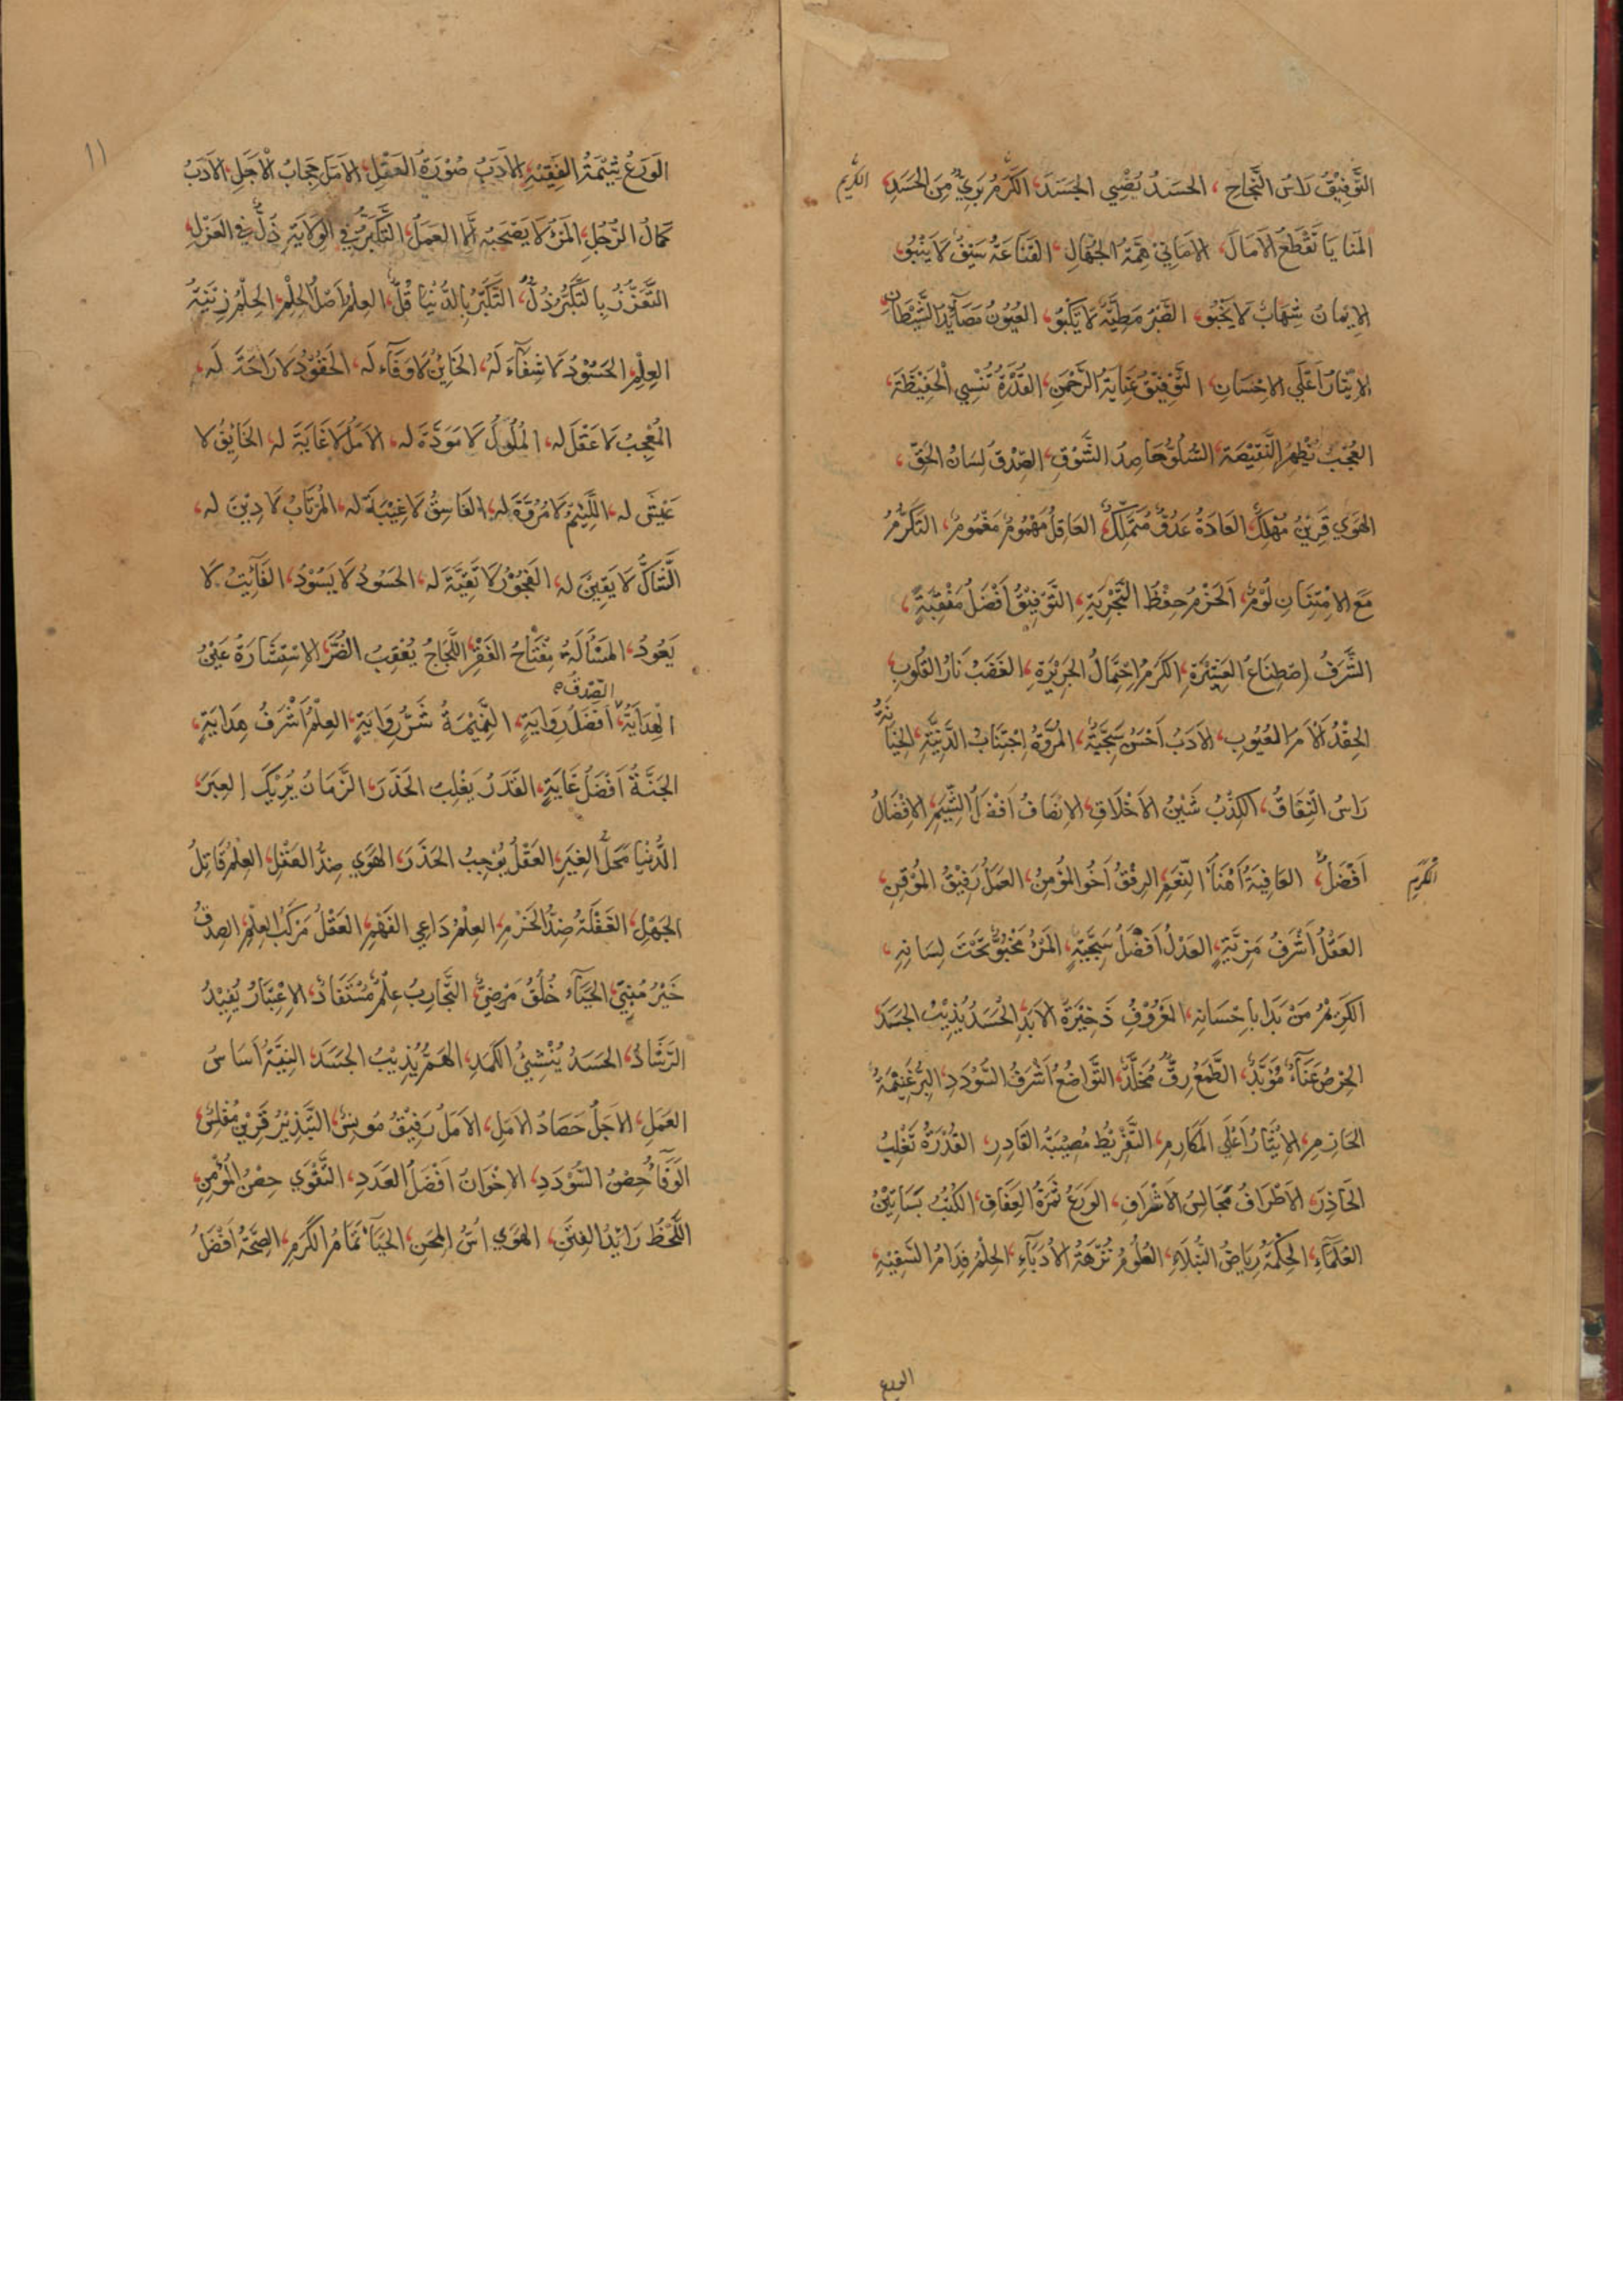 التَّوْفِيْقُ رَاسُ النَّجَاحِ، الحَسَدُ يُضْنِي الجَسَدَ، الكَرَمُ بَرِيٌّ مِنَ الحَسَدِ، الكريم
المَنَايَا تَقْطَعُ الاَمَالَ، الاَمَانِيُّ هِمَّةُ الجُهَّالِ، القَنَاعَةُ سَيْفٌ لَا يَنْبُو،
الاِيْمَانُ شِهَابٌ لَا يَخْبُو، الصَّبْرُ مَطِيَّةٌ لَا يَكْبُو، العُيُونُ مَصَآيِدُ الشَّيْطَانِ
الاِيْثَارُ اَعْلَي الاِحْسَانِ، التَّوْفِيْقُ عِنَايَةُ الرَّحْمٰنِ، القُدْرَةُ تُنْسِي الْحَفِيْظَةَ،
العُجْبُ يُظْهِرُ النَّقِيْصَةَ، السُّلُوُّ حَاصِدُ الشَّوْقِ، الصِّدْقُ لِسَانُ الحَقِّ،
الهَوَي قَرِيْنٌ مُهْلِكٌ، العَادَةُ عَدُوٌّ مُتَمَلِّكٌ، العَاقِلُ مَهْمُومٌ مَغْمُومٌ، التَكَرُّمُ
مَعَ الاِمْتِنَانِ لُوْمٌ، اَلحَزْمُ حِفْظُ التَّجْرِبَةِ، التَّوْفِيْقُ اَفْضَلُ مَنْقَبَةٍ،
الشَّرَفُ اِصْطِنَاعُ العَشِيْرَةِ، الكَرَمُ اِحْتِمَالُ الجَرِيْرَةِ، الغَضَبُ نَارُ القُلُوبِ
الحِقْدُ اَلْاَمُ العُيُوبِ، الاَدَبُ اَحْسَنُ سَجِيَّةٍ، المُرُوَّةُ اِجْتِنَابُ الدَّنِيَّةِ، الخِيَانَةُ
رَاسُ النِّفَاقُ، الكِذْبُ شَيْنُ الاَخْلَاقِ، الاِنْصَافُ اَفْضَلُ الشِّيَمِ، الاِفْضَالُ
اَفْضَلُ الكَرَمِ، العَافِيَةُ اَهْنَأُ النِّعَمِ، الرِفْقُ اَخُو المُؤْمِنِ، العَمَلُ رَفِيْقُ المُوْقِنِ،
العَقْلُ اَشْرَفُ مَزِيَّةٍ، العَدْلُ اَفْضَلُ سَجِيَّةٍ، المَرْءُ مَخْبُوٌّ تَحْتَ لِسَانِهِ،
الكَرِيْمُ مَنْ بَدَا بِاِحْسَانِهِ، المَعْرُوْفُ ذَخِيْرَةُ الاَبَدِ، الحَسَدُ يُذِيْبُ الجَسَدَ
الحِرْصُ عَنَآءٌ مُؤَبَّدٌ، الطَّمَعُ رِقٌّ مُخَلَّدٌ، التَّوَاضُعُ اَشْرَفُ السُّوْدَدِ، البِرُّ غَنِيْمَةُ
الحَازِمِ، الاِيْثَارُ اَعْلَي المَكَارِمِ، التَّفْرِيْطُ مُصِيْبَةُ القَادِرِ، القُدْرَةُ تَغْلِبُ
الحَاذِرَ، الاَطْرَافُ مَجَالِسُ الاَشْرَافِ، الوَرَعُ ثَمَرَةُ العَفَافِ، الكُتُبُ بَسَاتِيْنُ
العُلَمَآءِ، الحِكْمَةُ رِيَاضُ النُّبَلَاءِ، العُلُومُ نُزْهَةُ الاُدَبَآءِ، الحِلْمُ فِدَامُ السَّفِيْهِ،
الورع
١١
الوَرَعُ شِيْمَةُ الفَقِيْهِ، الاَدَبُ صُوْرَةُ العَقْلِ، الاَمَلُ حِجَابُ الْاَجَلِ، الاَدَبُ
كَمَالُ الرَّجُلِ، المَرْءُ لَا يَصْحَبُهُ اِلَّا العَمَلُ، التَّكَبُّرُ فِي الوِلَايَةِ ذُلٌّ فِي العَزْلِ،
التَّعَزُّزُ بِالتَّكَبُّرِ ذُلٌّ، التَّكَبُّرُ بِالدُّنْيَا قُلٌّ، العِلْمُ اَصْلُ الحِلْمِ، الحِلْمُ زِيْنَةُ
العِلْمِ، الحَسُوْدُ لَا شِفَآءَ لَهُ، الخَايِنُ لَا وَفَآء لَه، الحَقُوْدُ لَا رَاحَةَ لَه،
المُعْجِبُ لَا عَقْلَ له، المَلُوْلُ لَا مَوَدَّةَ له، الاَمَلُ لَا غَايَةَ له، الخَايِفُ لَا
عَيْشَ له، اللَّئِيْمُ لَا مُرُوَّةَ له، الفَاسِقُ لَا غِيْبَةَ له، المُرْتَابُ لَا دِيْنَ له،
الشَّاكُّ لَا يَقِيْنَ له، الفَجُوْرُ لَا تَقِيَّةَ له، الحَسُوْدُ لَا يَسُوْدُ، الفَآئِتُ لَا
يَعُوْدُ، المَسْأَلَةُ مِفْتَاحُ الفَقْرِ، اللَّجَاجُ يُعْقِبُ الضُّرَّ، الاِسْتِشَارَةُ عَيْنُ
الصِّدْقُ
الهِدَايَةِ، اَفْضَلُ رِوَايَةٍ، النَّمِيْمَةُ شَرُّ رِوَايَةٍ، العِلْمُ اَشْرَفُ هِدَايَةٍ،
الجَنَّةُ اَفْضَلُ غَايَةٍ، القَدَرُ يَغْلِبُ الحَذَرَ، الزَّمَانُ يُرِيْكَ العِبَرَ،
الدُّنْيَا مَحَلُّ الغِيَرِ، العَقْلُ يُوْجِبُ الحَذَرَ، الهَوَي ضِدُّ العَقْلِ، العِلْمُ قَاتِلُ
الجَهْلِ، الغَفْلَةُ ضِدُّ الحَزْمِ، العِلْمُ دَاعِي الفَهْمِ، العَقْلُ مَرْكَبُ العِلْمِ، الصِدْقُ
خَيْرُ مُنْبِئٍ، الحَيَآء خُلُقٌ مَرْضِيٌّ، التَّجَارِبُ عِلْمٌ مُسْتَفَادٌ، الاِعْتِبَارُ يُفِيْدُ
الرَّشَادَ، الحَسَدُ يُنْشِئُ الكَمَدَ، الهَمُّ يُذِيْبُ الجَسَدَ، النِيَّةُ اَسَاسُ
العَمَلِ، الاَجَلُ حَصَادُ الاَمَلِ، الاَمَلُ رَفِيْقٌ مُونِسٌ، التَّبْذِيْرُ قَرِيْنٌ مُفْلِسٌ،
الوَفَآءُ حِصْنُ السُّوْدَدِ، الاِخْوَانُ اَفْضَلُ العَدَدِ، التَّقْوَي حِصْنُ المُؤْمِنِ،
اللَّحْظُ رَائِدُ الفِتَنِ، الهَوَي اُسُّ المِحَنِ، الحَيَآءُ تَمَامُ الكَرَمِ، الصِّحَّةُ اَفْضَلُ